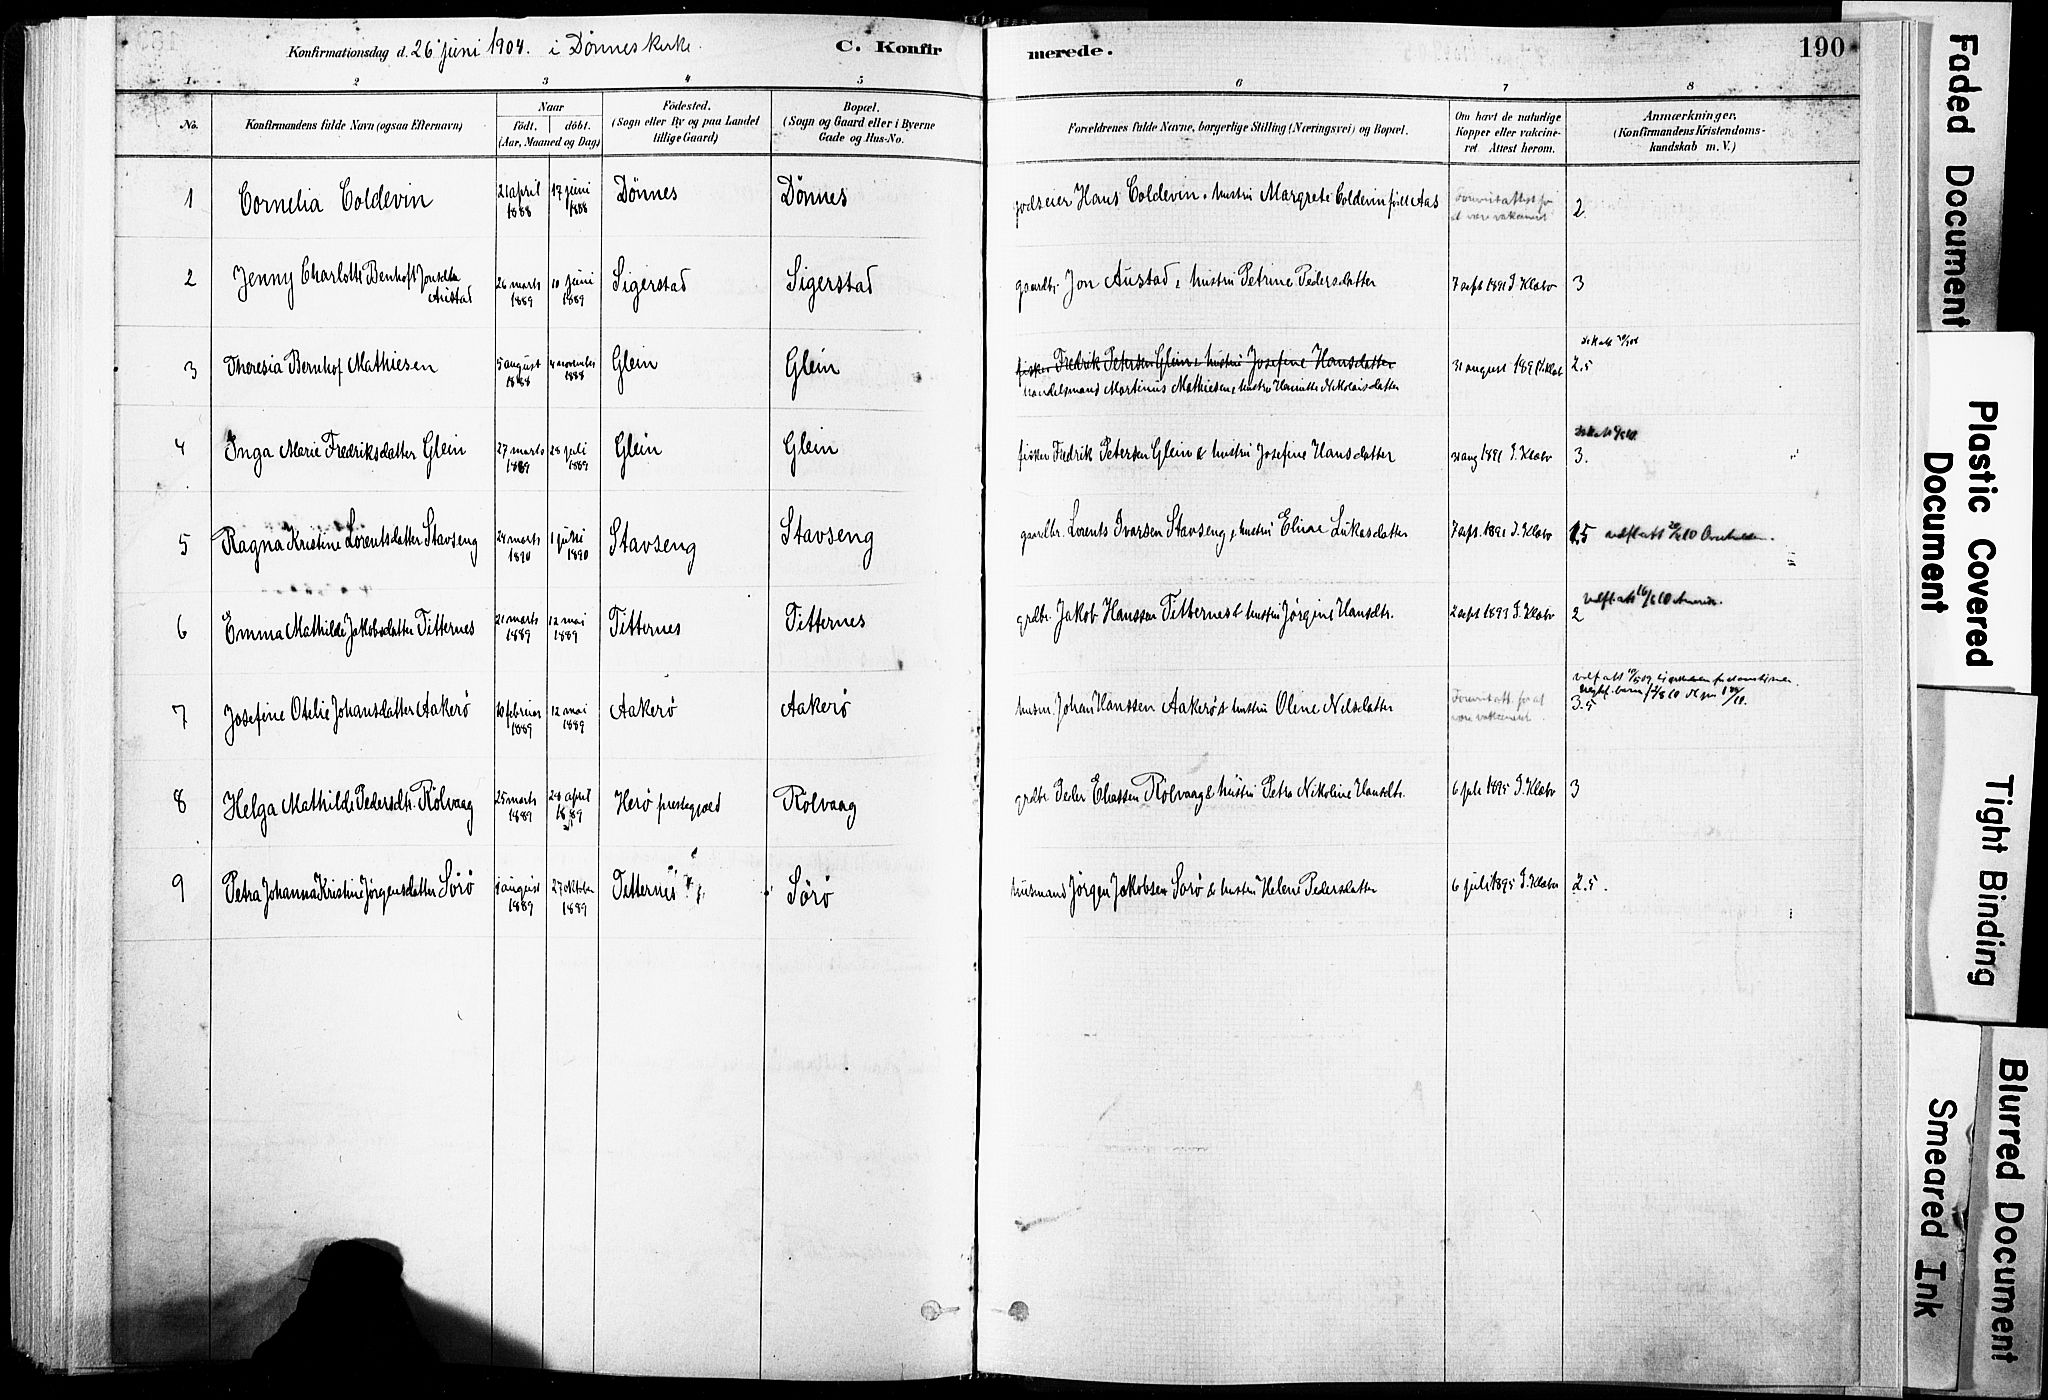 Konfirmationsdag d. 26 juni 1904. i Dønnes kirke.
C. Konfirmerede.
190
1 2 3 4 5 6 7 8
No.
Konfirmandens fulde Navn (ogsaa Efternavn)
Naar
födt. döbt.
(Aar, Maaned og Dag)
Födested.
(Sogn eller By og paa Landet
tillige Gaard)
Bopæl.
(Sogn og Gaard eller i Byerne
Gade og Hus-No.
Forældrenes fulde Navne, borgerlige Stilling (Næringsvei) og Bopæl.
Om havt de naturlige
Kopper eller vakcine-
ret. Attest herom.
Anmærkninger.
(Konfirmandens Kristendoms-
kundskab m. V.)
1 Cornelia Coldevin 21 april 1888 17 juni 1888 Dönnes Dönnes godseier Hans Coldevin. hustru Margrete Coldevin født Aas 2
2 Jenny Charlotte Benhoft Jonsdtr Austad 26 marts 1889 10 juni 1889 Sigerstad Sigerstad gaardbr. Jon Austad, hustru Petrine Pedersdatter 7 sept 1891 J. Klæbo 3
3 Theresia Bernhof Mathiesen 5 august 1888 4 november 1888 Glein Glein fisker Fredrik Petersen Glein & hustru Josefine Hansdatter
handelsmand Martinus Mathiesen, hustru Nikolaisdatter 31 august 1891 2.5
4 Inga Marie Fredriksdatter Glein 27 marts 1889 28 juli 1889 Glein Glein fisker Fredrik Petersen Glein & hustru Josefine Hansdatter 31 aug 1891 J. Klæbo 3.
5 Ragna Kristine Lorentsdatter Stavseng 24 marts 1890 1 juni 1890 Stavseng Stavseng gaardbr. Lorents Ivarsen Stavseng, hustru Eline Lukasdatter 7 sept. 1891 J. Klæbo 1.5
6 Emma Mathilde Jakobsdatter Titternes 21 marts 1889 12 mai 1889 Titternes Titternes grdbr. Jakob Hanssen Titternes & hustru Jørgine Hansdtr. 2 sept 1893 J. Klæbo 2
7 Josefine Otelie Johansdatter Aakerö 10 februar 1889 12 mai 1889 Aakerö Aakerö husm. Johan Hanssen Aakerö & hustru Oline Nilsdatter 3.5
8 Helga Mathilde Pedersdtr. Rölvaag 25 marts 1889 28 april 1889 Herö prestegjæld Rölvaag grdbr. Peder Eliassen Rölvaag & hustru Petra Nikoline Hansdtr. 6 juli 1895 J. Klæbo 3
9 Petra Johanna Kristine Jörgensdatter Sörö august 1889 27 oktober 1889 Titternes Sörö husmand Jörgen Jakobsen Sorö & hustru Helene Pedersdatter 6 juli 1895 J. Klæbo 2.5.
Faded Document
Plastic Covered
Document
Tight Binding
Blurred Document
Smeared Ink